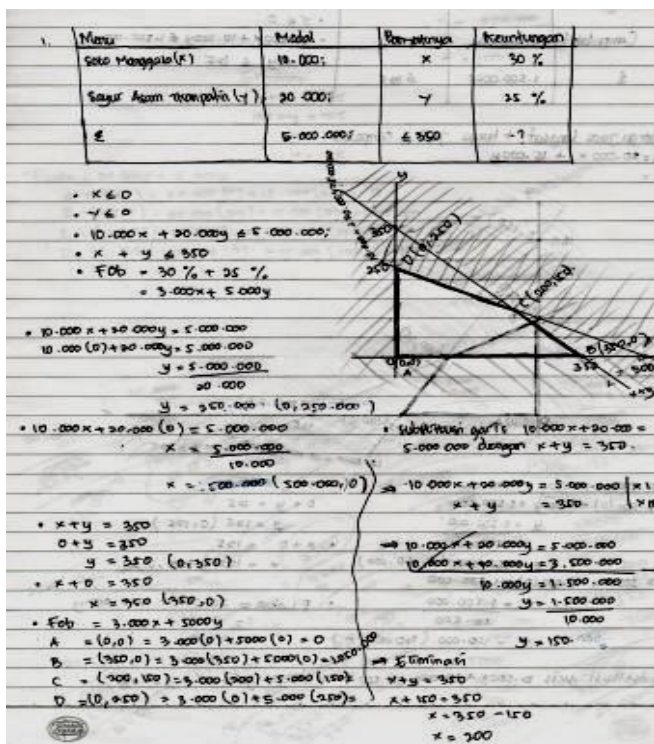 1. Menu Modal Banyaknya Keuntungan
Soto Manggala (x) 10.000; x 30 %
Sayur Asam (y) 20.000; y 25 %
Σ 5.000.000; ≤ 350 - ?
• x ≤ 0
• y ≤ 0
• 10.000x + 20.000y ≤ 5.000.000;
• x + y ≤ 350
• FOb = 30 % + 25 %
= 3.000x + 5.000y
y
350
250
D (0,250)
C (200,150)
B (350,0)
(0,0)
A
350
• 10.000x + 20.000y = 5.000.000
10.000 (0) + 20.000y = 5.000.000
y = 5.000.000
20.000
y = 250.000 (0, 250.000)
• 10.000x + 20.000 (0) = 5.000.000
x = 5.000.000
10.000
x = 500.000 (500.000, 0)
• x + y = 350
0 + y = 350
y = 350 (0,350)
• x + 0 = 350
x = 350 (350,0)
• Fob = 3.000x + 5000y
A = (0,0) = 3.000(0) + 5000(0) = 0
B = (350,0) = 3.000(350) + 5000(0) = 1.050.000
C = (200,150) = 3.000(200) + 5.000(150) =
D = (0,250) = 3.000(0) + 5.000(250) =
• Substitusi garis 10.000x + 20.000 =
5.000.000 dengan x + y = 350.
⇒ 10.000x + 20.000y = 5.000.000 | x 1
x + y = 350
⇒ 10.000x + 20.000y = 5.000.000
10.000x + 10.000y = 3.500.000
10.000y = 1.500.000
y = 1.500.000
10.000
y = 150.
⇒ Eliminasi
x + y = 350
x + 150 = 350
x = 350 - 150
x = 200